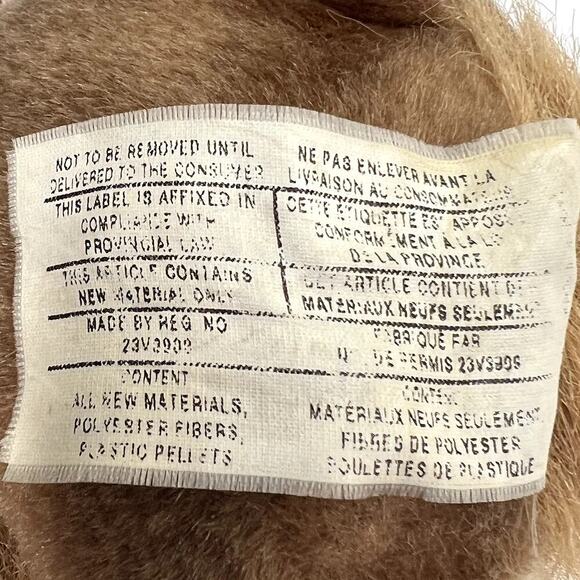 NOT TO BE REMOVED UNTIL
DELIVERED TO THE CONSUMER
THIS LABEL IS AFFIXED IN
COMPLIANCE WITH
PROVINCIAL LAW
THIS ARTICLE CONTAINS
NEW MATERIAL ONLY
MADE BY REG NO
23V3909
CONTENT
ALL NEW MATERIALS,
POLYESTER FIBERS,
PLASTIC PELLETS
NE PAS ENLEVER AVANT LA
LIVRAISON AU CONSOMMATEUR
CETTE ÉTIQUETTE EST APPOSÉ
CONFORMÉMENT À LA LOI
DE LA PROVINCE
CET ARTICLE CONTIENT DE
MATÉRIAUX NEUFS SEULEMENT
FABRIQUE PAR
DE PERMIS 23V3909
CONTENU
MATÉRIAUX NEUFS SEULEMENT
FIBRES DE POLYESTER
BOULETTES DE PLASTIQUE